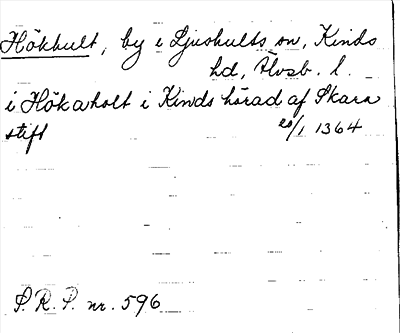 Hökhult, by i Ljushults sn, Kinds
hd, Älvsb. l.
i Hökaholt i Kinds härad af Skara
stift 20/1 1364
S.R.P. nr. 596